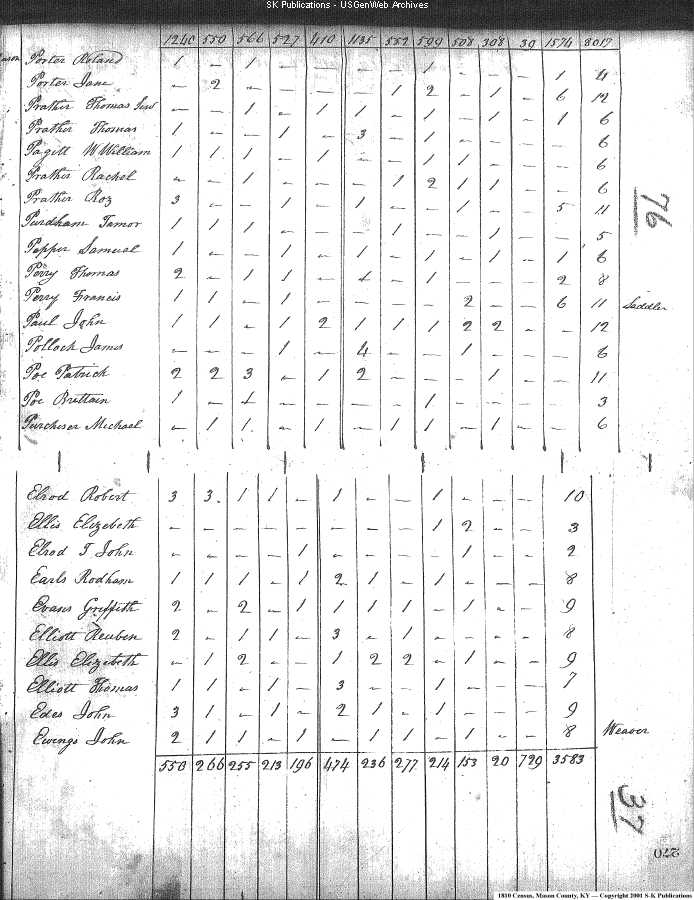 SK Publications - USGenWeb Archives
1240 550 566 527 410 1135 552 599 508 308 39 1574 8017
Porter Roland 1 - 1 - - - - 1 - - - 1 4
Porter Jane - 2 - - - - 1 2 - 1 - 6 12
Prather Thomas - - 1 - 1 1 - 1 - 1 - 1 6
Prather Thomas 1 - - 1 - 3 - 1 - - - - 6
Pagitt W William 1 1 1 - 1 - - 1 1 - - - 6
Prather Rachel - - 1 - - - 1 2 1 1 - - 6
Prather Roz 3 - - 1 - 1 - - 1 - - 5 11
Purdham Tamor 1 1 1 - - - 1 - - 1 - - 5
Pepper Samuel 1 - - 1 - 1 - 1 - 1 - 1 6
Perry Thomas 2 - 1 1 - 1 - 1 - - - 2 8
Perry Francis 1 1 - 1 - - - - 2 - - 6 11 Saddler
Paul John 1 1 - 1 2 1 1 1 2 2 - - 12
Pollock James - - - 1 - 4 - - 1 - - - 6
Poe Patrick 2 2 3 - 1 2 - - - 1 - - 11
Poe Brittain 1 - 1 - - - - 1 - - - - 3
Purcheser Michael - 1 1 - 1 - 1 1 - 1 - - 6
76
Elrod Robert 3 3 1 1 - 1 - - 1 - - - 10
Ellis Elizabeth - - - - - - - - 1 2 - - 3
Elrod T John - - - - 1 - - - - 1 - - 2
Earls Rodham 1 1 1 - 1 2 1 - 1 - - - 8
Evans Griffith 2 - 2 - 1 1 1 1 - 1 - - 9
Elliott Reuben 2 - 1 1 - 3 - 1 - - - - 8
Ellis Elizabeth - 1 2 - - 1 2 2 - 1 - - 9
Elliott Thomas 1 1 - 1 - 3 - - 1 - - - 7
Edes John 3 1 - 1 - 2 1 - 1 - - - 9
Ewings John 2 1 1 - 1 - 1 1 - 1 - - 8 Weaver
550 266 255 213 196 474 236 277 214 153 20 729 3583
37
270
1810 Census, Mason County, KY — Copyright 2001 S-K Publications